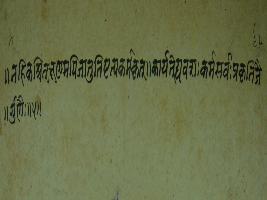 ॥ नहिकश्चित्क्षणमपिजातुतिष्टत्यकर्मकृत् ॥ कार्यतेह्यवशः कर्मसर्वः प्रकृतिजै
॥ र्गुणैः ॥ ५ ॥